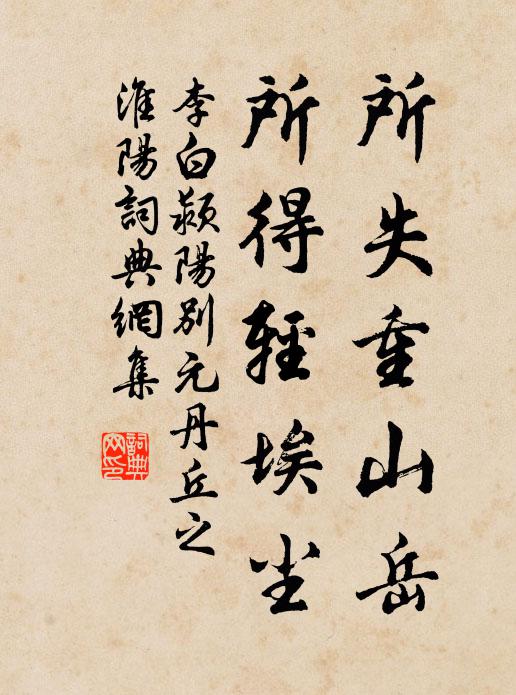 所失重山岳
所得輕埃尘
李白颍陽别元丹丘之
淮陽詞典網集
詞典
网印